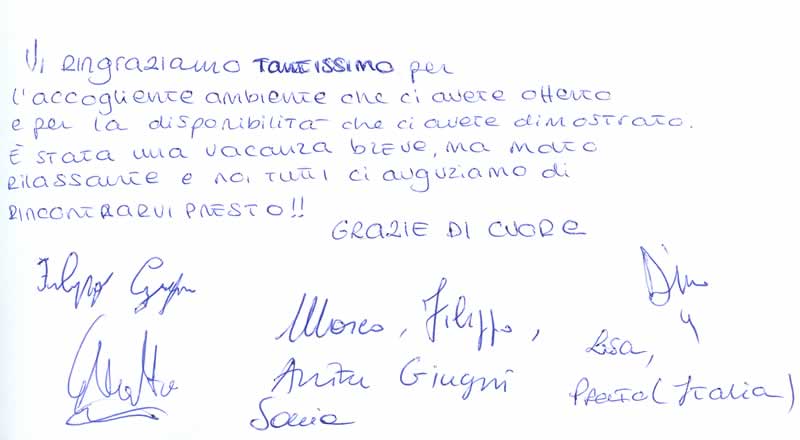 Vi Ringraziamo tantissimo per
l'accogliente ambiente che ci avete offerto
e per la disponibilità che ci avete dimostrato.
È stata una vacanza breve, ma molto
rilassante e noi tutti ci auguriamo di
rincontrarvi presto!!
GRAZIE DI CUORE
Filippo
Dino
Marco, Filippo,
Lisa,
Anita Giugni
Prato (Italia)
Sonia